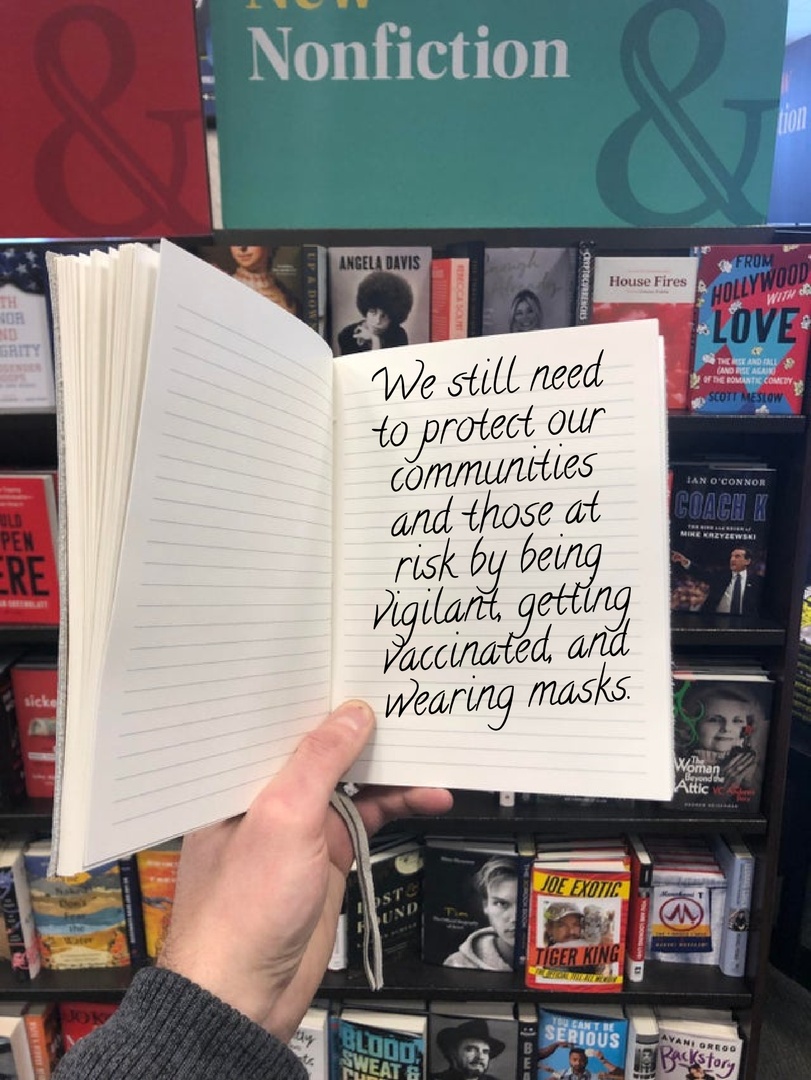 New
Nonfiction
&
&
ANGELA DAVIS
House Fires
FROM
HOLLYWOOD
WITH
LOVE
THE RISE AND FALL
(AND RISE AGAIN)
OF THE ROMANTIC COMEDY
SCOTT MESLOW
We still need
to protect our
communities
and those at
risk by being
vigilant, getting
vaccinated, and
wearing masks.
IAN O'CONNOR
COACH K
THE RISE AND REIGN OF
MIKE KRZYZEWSKI
The
Woman
Beyond the
Attic
Tim
JOE EXOTIC
TIGER KING
THE OFFICIAL TELL-ALL MEMOIR
BLOOD,
SWEAT &
YOU CAN'T BE
SERIOUS
AVANI GREGG
Backstory